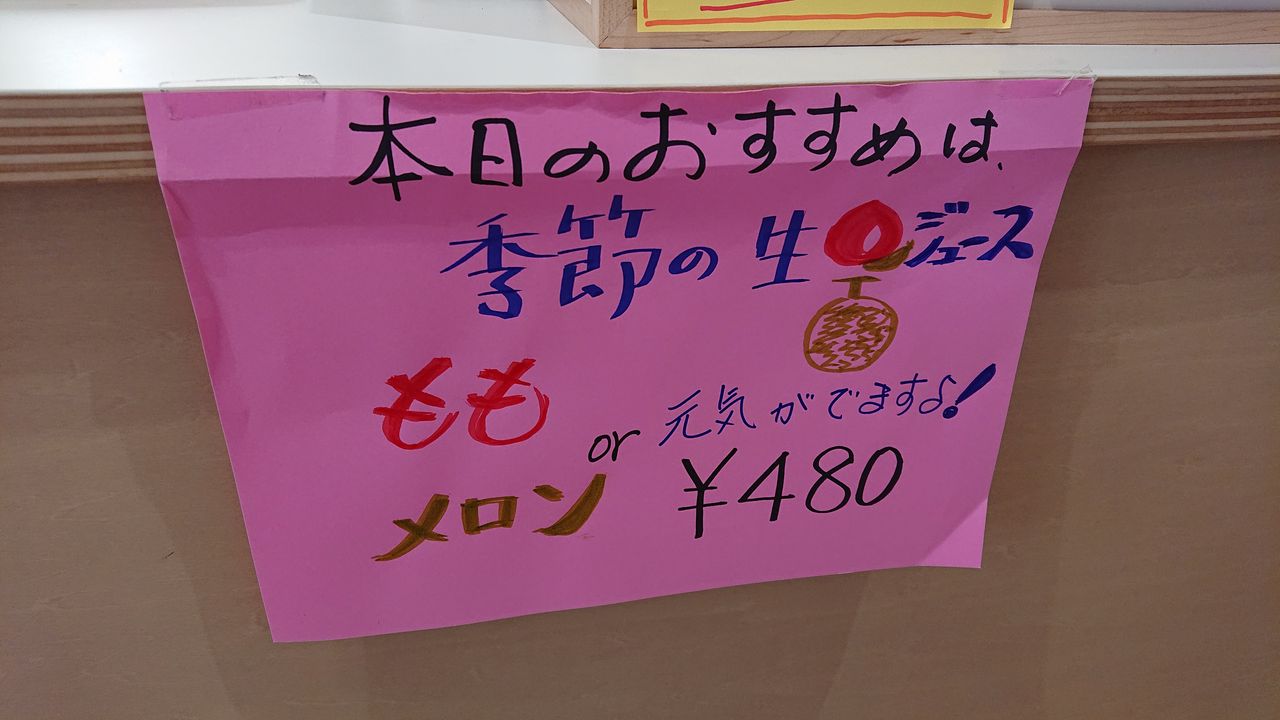 本日のおすすめは、
季節の生ジュース
もも
or
メロン
元気がでますよ!
¥480